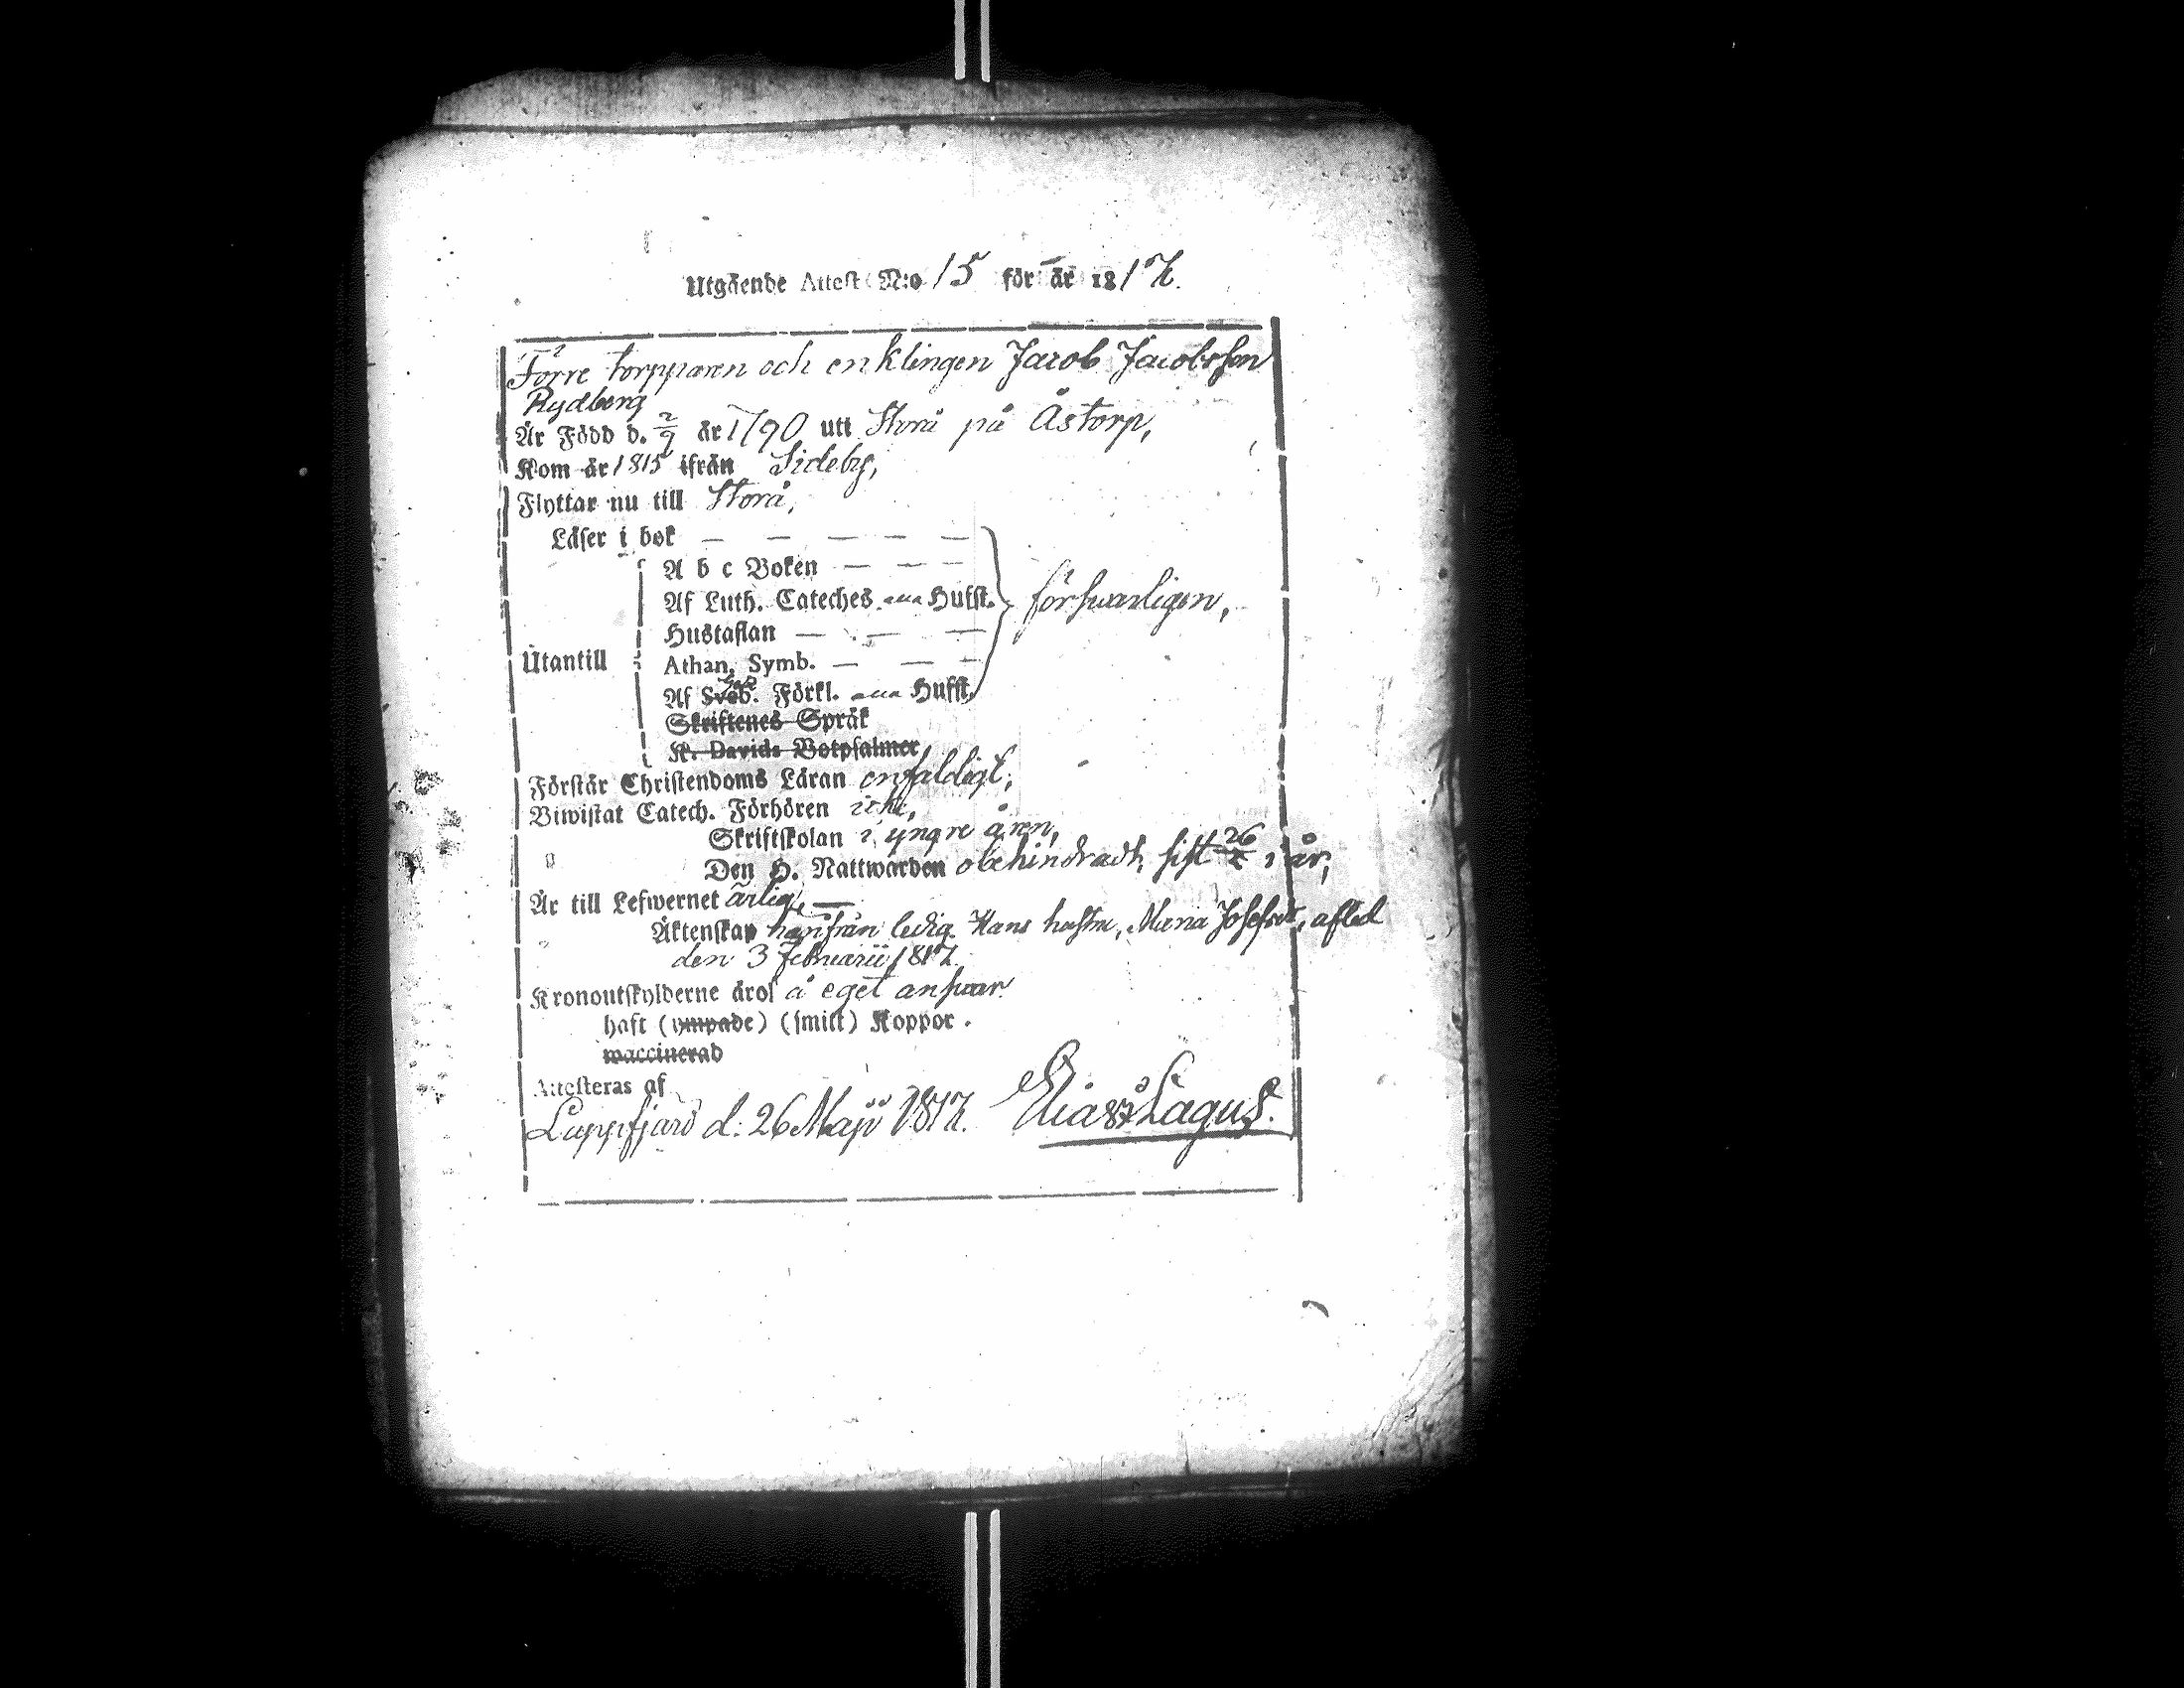 Utgående Attest N:o 15 för år 1817.
Förre torpparen och enklingen Jacob Jacobsson
Rydberg
Är Född d. 2/9 år 1790 utt Storå på Åstorp,
Kom år 1815 ifrån Sideby,
Flyttar nu till Storå,
Läser i bok — — — — —
A b c Boken — — —
Af Luth. Cateches utan Husst. försvarligen,
Hustaflan — — —
Utantill
Athan. Symb. — — —
Af Sveb. Förkl. utan Husst.
Skriftenes Språk
K. Davids Botpsalmer
Förstår Christendoms Läran enfaldigt,
Biwistat Catech. Förhören icke,
Skriftskolan i yngre åren,
Den H. Nattwarden obehindradt, sist 26/5 i år,
Är till Lefwernet ärlig, —
Äktenskap härifrån ledig. Hans hustru, Maria Josefsdr, afled
den 3 Februarii 1817.
Kronoutskylderne äro å eget ansvar.
haft (ympade) (smitt) Koppor.
waccinerad
Attesteras af
Lappfjärd d. 26 Maji 1817. Elias Lagus.